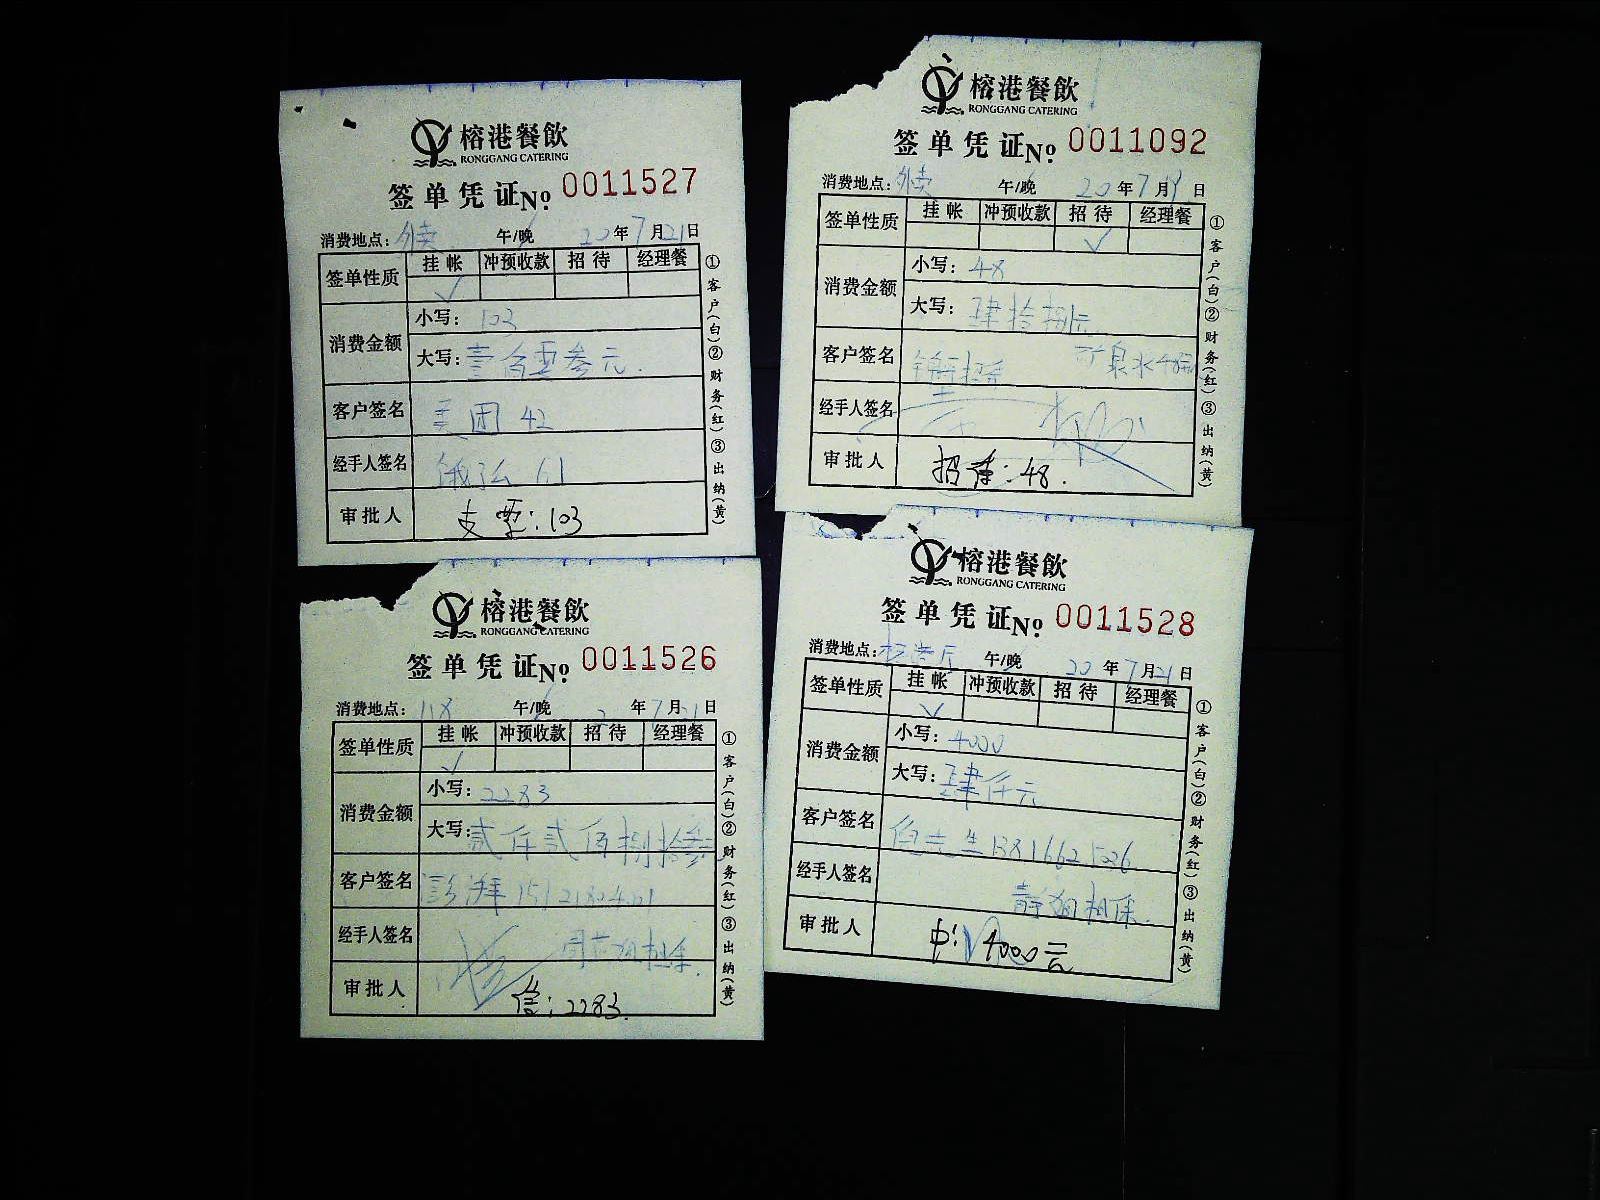 榕港餐飲
RONGGANG CATERING
签单凭证 № 0011527
消费地点：外卖 午/晚 20年7月21日
签单性质 挂帐 冲预收款 招待 经理餐
✓
消费金额 小写：103
大写：壹佰零叁元
客户签名 美团 42
经手人签名 饿了么 61
审批人 支票：103
①客户(白)②财务(红)③出纳(黄)
榕港餐飲
RONGGANG CATERING
签单凭证 № 0011092
消费地点：外卖 午/晚 20年7月19日
签单性质 挂帐 冲预收款 招待 经理餐
✓
消费金额 小写：48
大写：肆拾捌元
客户签名 招待 矿泉水48元
经手人签名
审批人 招待：48.
①客户(白)②财务(红)③出纳(黄)
榕港餐飲
RONGGANG CATERING
签单凭证 № 0011526
消费地点：118 午/晚 年7月21日
签单性质 挂帐 冲预收款 招待 经理餐
✓
消费金额 小写：2283
大写：贰仟贰佰捌拾叁元
客户签名 彭湃
经手人签名 担保.
审批人 信：2283.
①客户(白)②财务(红)③出纳(黄)
榕港餐飲
RONGGANG CATERING
签单凭证 № 0011528
消费地点： 午/晚 20年7月21日
签单性质 挂帐 冲预收款 招待 经理餐
✓
消费金额 小写：4000
大写：肆仟元
客户签名 先生 13816625026
经手人签名 静 担保.
审批人 4000元
①客户(白)②财务(红)③出纳(黄)